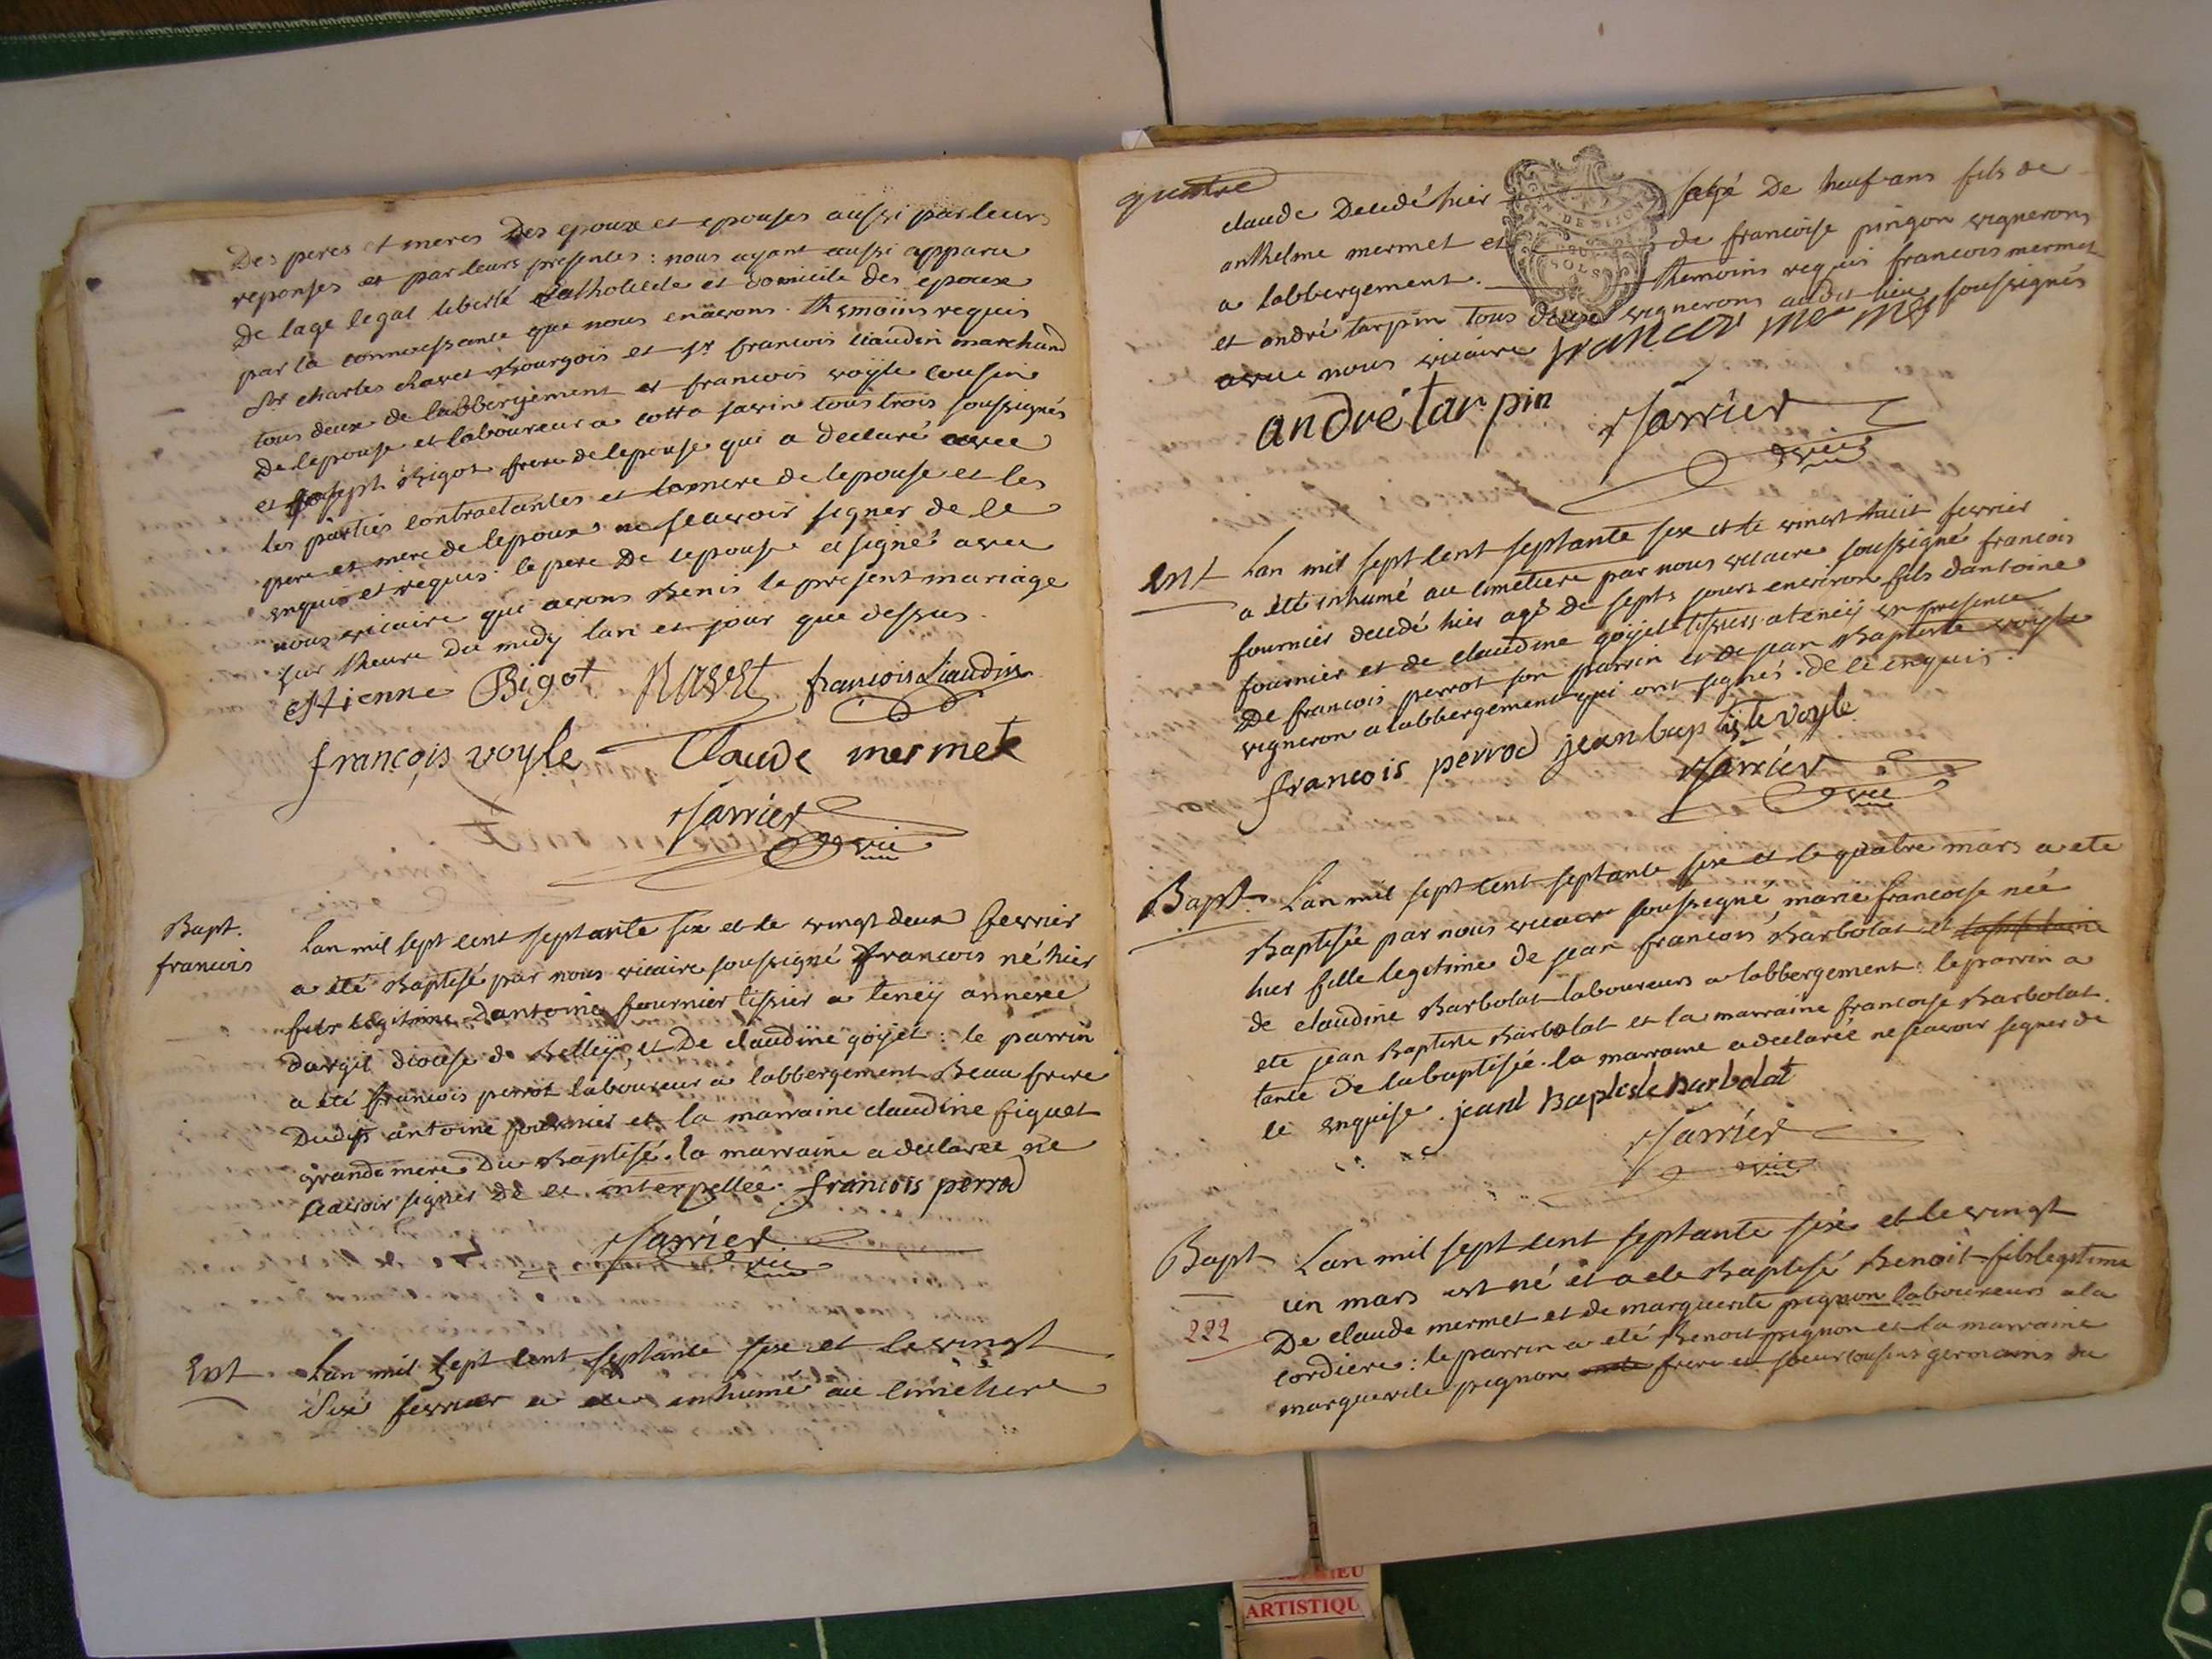 Des peres et meres Des epoux et epouses aussi par leurs
reponses et par leurs presentes : nous ayant aussi apparu
De lage legal liberté Catholicite et domicile des epoux
par la connoissance que nous en avons. Themoins requis
Sr charles chavet Bourgois et Sr francois liaudin marchand
tous deux de labbergement et francois voyle cousin
De lepouse et laboureur a cotta savin tous trois soussignés
et joseph Bigot frere de lepouse qui a declaré avec
les parties contractantes et la mere de lepouse et les
pere et mere de lepoux ne scavoir signer de ce
enquis et requis le pere De lepouse a signé avec
nous vicaire qui avons Benis le present mariage
sur lheure du midy lan et jour que dessus.
Etienne Bigot francois Liaudin
françois voyle Claude mermet
Jarrier
vic
Bapt.
francois
Lan mil sept cent septante six et le vingt deux fevrier
a été Baptisé par nous vicaire soussigné francois né hier
fils legitime Dantoine fournier tissier a teneÿ annexe
Dargil diocese de Belleÿ, et De claudine goÿet : le parrin
a été francois perrot laboureur a labbergement Beau frere
Dudit antoine fournier et la marraine claudine figuet
grande mere Du Baptisé. la marraine a declaree ne
scavoir signer de ce interpellee. francois perrod
Jarrier
vic
Ent
Lan mil sept cent septante six et le vingt
Six fevrier a ete inhumé au cimetiere
quatre
claude Decedé hier agé De neuf ans fils de
anthelme mermet et de francoise pingon vignerons
a labbergement. Themoins requis francois mermet
et andré tarpin tous deux vignerons audit lieu soussignés
avec nous vicaire francoi mer me
andré tarpin Jarrier
vic
Ent
Lan mil sept cent septante six et le vingt huit fevrier
a été inhumé au cimetiere par nous vicaire soussigné francois
fournier decedé hier agé de septs jours environ fils dantoine
fournier et de claudine goÿet tissiers a teneÿ en presence
De francois perrot son parrin et de jean Baptiste voÿle
vigneron a labbergement qui ont signés. de ce enquis.
francois perrod jean baptiste voyle
Jarrier
vic
Bapt.
Lan mil sept cent septante six et le quatre mars a ete
Baptisée par nous vicaire soussigné, marie francoise née
hier fille legitime de jean francois Barbolat et
de claudine Barbolat laboureurs a labbergement : le parrin a
ete jean Baptiste Barbolat et la marraine francoise Barbolat
tante de la baptisée. la marraine a declaréé ne scavoir signer de
ce enquise. jean Baptiste barbolat
Jarrier
vic
Bapt
Lan mil sept cent septante six et le vingt
un mars est né et a ete Baptisé Benoit fils legitime
222
De claude mermet et de marguerite pignon laboureurs a la
cordiere : le parrin a eté Benoit pignon et la marraine
marguerite pignon frere et soeur cousins germains du
ARTISTIQU